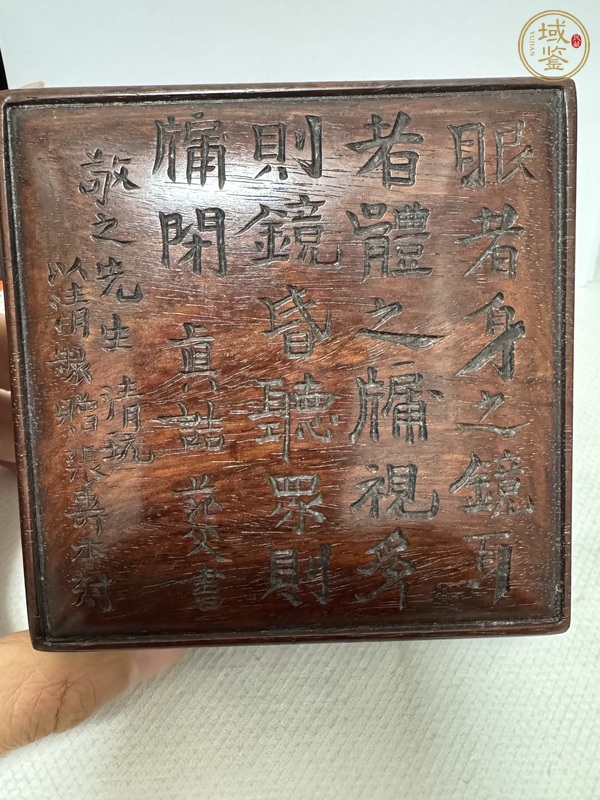 眼者身之鏡耳
者體之牖視多
則鏡昏聽眾則
牖閉 真誥 范父書
敬之先生 清玩
以清製贈 張壽木封
域鉴
YUJIAN